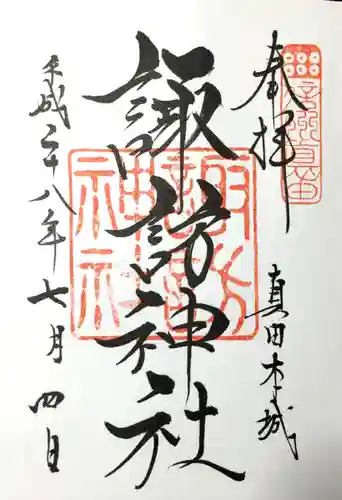 奉拝
真田本城
諏訪神社
諏訪神社
平成二十八年七月四日